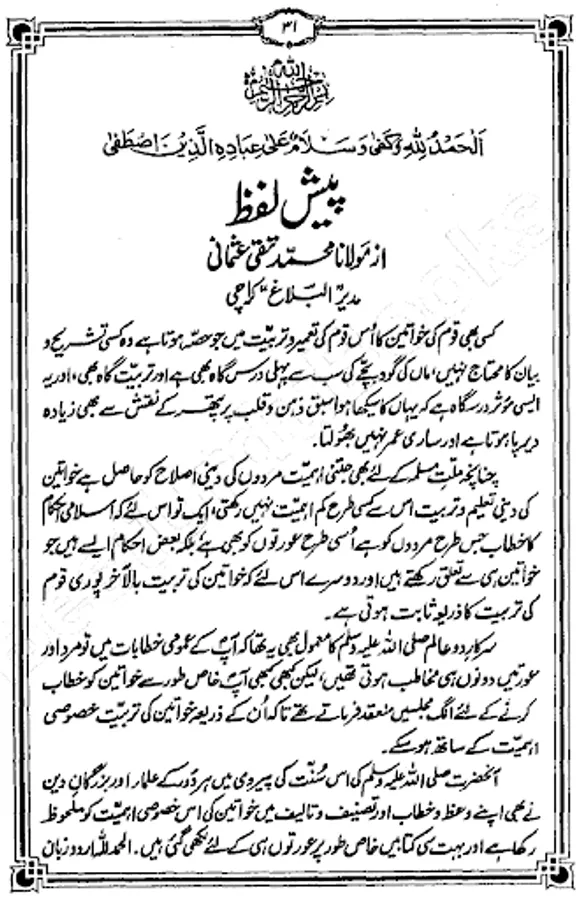 ۳۱
بسم الله الرحمن الرحيم
اَلْحَمْدُ لِلّٰهِ وَكَفٰى وَسَلَامٌ عَلٰى عِبَادِهِ الَّذِيْنَ اصْطَفٰى
پیش لفظ
از مولانا محمد تقی عثمانی
مدیر "البلاغ" کراچی
کسی بھی قوم کی خواتین کا اُس قوم کی تعمیر و تربیت میں جو حصہ ہوتا ہے وہ کسی تشریح و
بیان کا محتاج نہیں، ماں کی گود بچّے کی سب سے پہلی درس گاہ بھی ہے اور تربیت گاہ بھی، اور یہ
ایسی مؤثر درسگاہ ہے کہ یہاں کا سیکھا ہوا سبق ذہن و قلب پر پتھر کے نقش سے بھی زیادہ
دیرپا ہوتا ہے اور ساری عمر نہیں بھُولتا۔
چنانچہ ملتِ مسلمہ کے لئے بھی جتنی اہمیت مردوں کی دینی اصلاح کو حاصل ہے خواتین
کی دینی تعلیم و تربیت اس سے کسی طرح کم اہمیت نہیں رکھتی، ایک تو اس لئے کہ اسلامی احکام
کا خطاب جس طرح مردوں کو ہے اُسی طرح عورتوں کو بھی ہے بلکہ بعض احکام ایسے ہیں جو
خواتین ہی سے تعلق رکھتے ہیں اور دوسرے اس لئے کہ خواتین کی تربیت بالآخر پوری قوم
کی تربیت کا ذریعہ ثابت ہوتی ہے۔
سرکارِ دو عالم صلی اللہ علیہ وسلم کا معمول بھی یہ تھا کہ آپؐ کے عمومی خطابات میں تو مرد اور
عورتیں دونوں ہی مخاطب ہوتی تھیں، لیکن کبھی کبھی آپؐ خاص طور سے خواتین کو خطاب
کرنے کے لئے الگ مجلسیں منعقد فرماتے تھے تاکہ اُن کے ذریعہ خواتین کی تربیت خصوصی
اہمیت کے ساتھ ہو سکے۔
آنحضرت صلی اللہ علیہ وسلم کی اس سُنّت کی پیروی میں ہر دَور کے علماء اور بزرگانِ دین
نے بھی اپنے وعظ و خطاب اور تصنیف و تالیف میں خواتین کی اس خصوصی اہمیت کو ملحوظ
رکھا ہے اور بہت سی کتابیں خاص طور پر عورتوں ہی کے لئے لکھی گئی ہیں۔ الحمد للہ اردو زبان